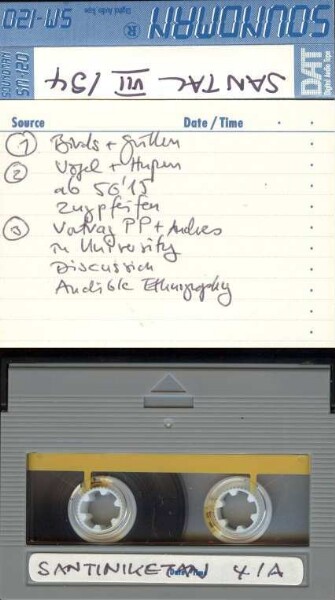 SM-120
Digital Audio Tape
® SOUNDMAN
SANTAL VII / 94
DAT
Digital Audio Tape
SOUNDMAN
SM-120
Source Date / Time
① Birds + Grillen
② Vögel + Hupen
ab 56'15
Zugpfeifen
③ Vortrag PP + Andres
in University
Discussion
Audible Ethnography
SANTINIKETAN 4/A